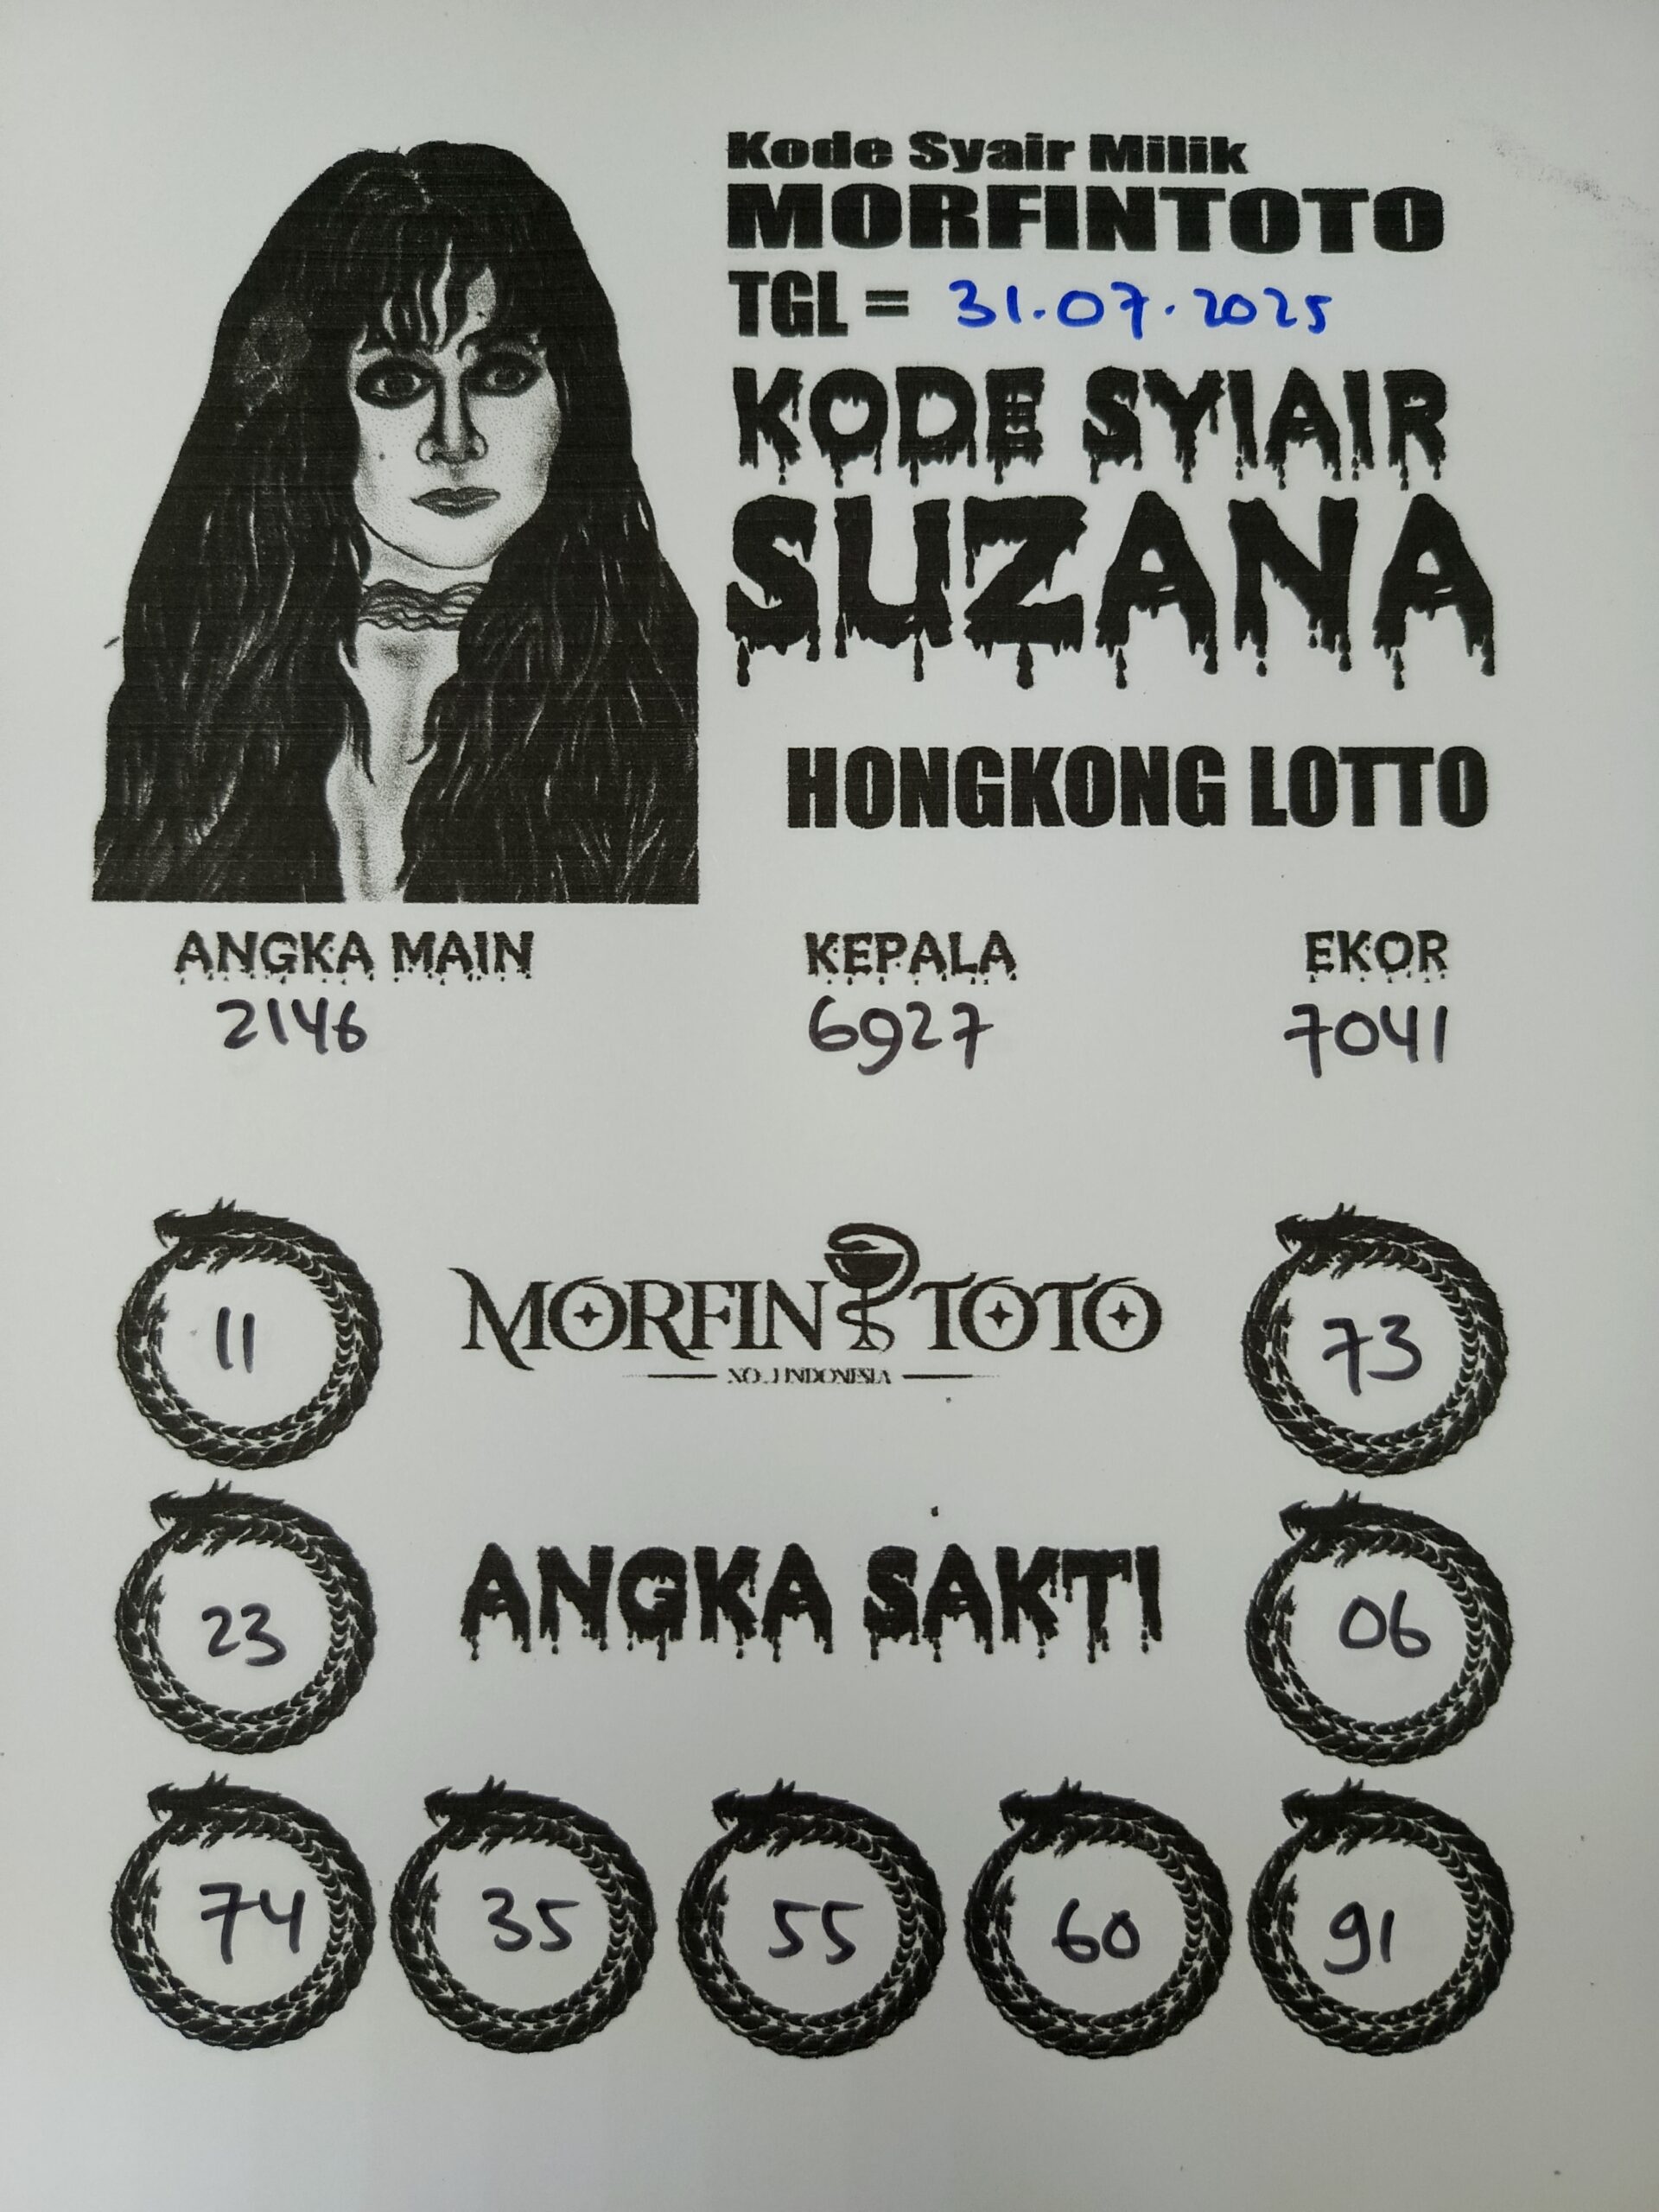 Kode Syair Milik
MORFINTOTO
TGL = 31.07.2025
KODE SYIAIR
SUZANA
HONGKONG LOTTO
ANGKA MAIN KEPALA EKOR
2146 6927 7041
11 MORFIN TOTO 73
NO.1 INDONESIA
23 ANGKA SAKTI 06
74 35 55 60 91